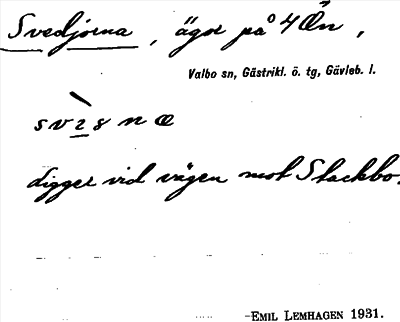 Svedjorna, ägor på 4 Ön,
Valbo sn, Gästrikl. ö. tg, Gävleb. l.
ligger vid vägen mot Stackbo.
EMIL LEMHAGEN 1931.